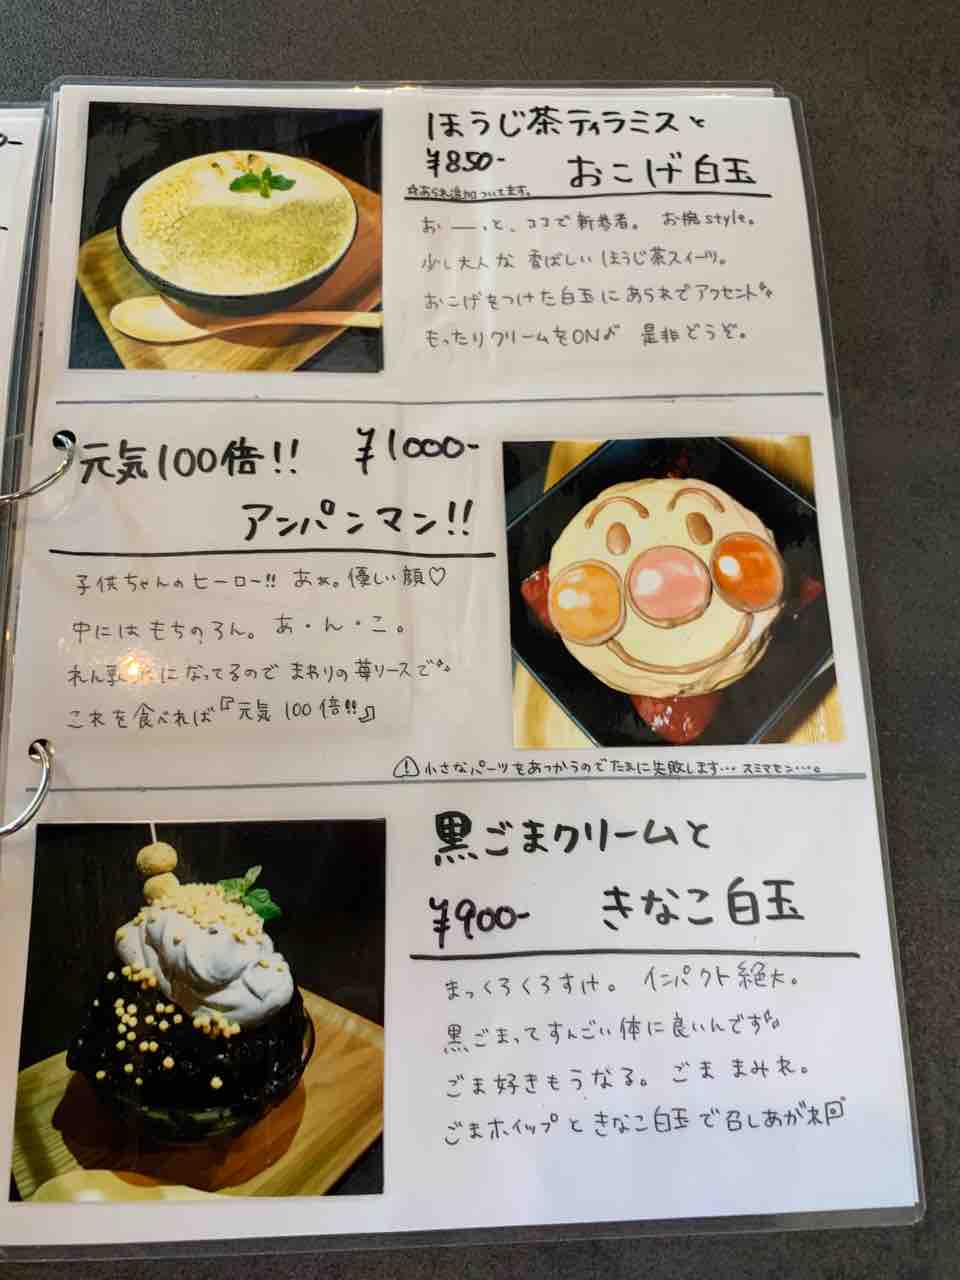 ほうじ茶ティラミスと
¥850-
おこげ白玉
☆あられ追加ついてます。
おーっと、ココで新参者。 お椀style。
少し大人な 香ばしい ほうじ茶スイーツ。
おこげをつけた白玉に あられでアクセント
もったりクリームをON♪ 是非どうぞ。
元気100倍!! ¥1000-
アンパンマン!!
子供ちゃんのヒーロー!! あぁ。優しい顔♡
中には もちのろん。 あ・ん・こ。
れん乳 になってるので まわりの苺ソースで
これを食べれば『元気100倍!!』
小さなパーツをあつかうので たまに失敗します… スミマセン…。
黒ごまクリームと
¥900-
きなこ白玉
まっくろくろすけ。 インパクト絶大。
黒ごまってすんごい体に良いんです
ごま好きもうなる。 ごま まみれ。
ごまホイップと きなこ白玉で召しあがれ